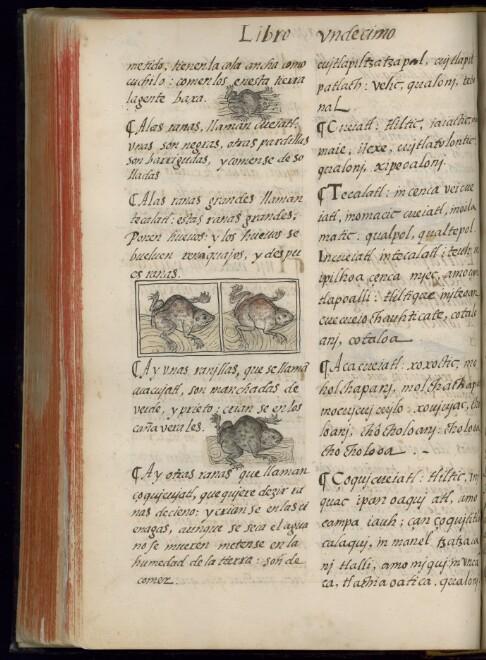 Libro vndecimo
metido, tienen la cola ancha como
cuchilo: comenlos enesta tierra
la gente baxa.
¶ Alas ranas, llaman cueiatl.
vnas son negras, otras pardillas
son barrigudas, y comense deso
lladas
¶ Alas ranas grandes llaman
tecalatl: estas ranas grandes,
Ponen huevos: y los huevos se
buelven renaquajos, y despu
es ranas.
¶ Ay vnas ranillas, que se llamã
acacujatl, son manchadas de
verde, y prieto: crian se en los
cañaverales.
¶ Ay otras ranas que llaman
coqujcujatl, que quiere dezir ra
nas de cieno: y crian se en las ci
enagas, aũnque se seca el agua
no se mueren metense en la
humedad de la tierra: son de
comer.
cujtlapiltzatzapal, cujtlapil
patlach: velic, qualonj,
nal.
¶ Cueiatl: tliltic,
maie, icxe, cujtlatolontic,
qualonj, xipocalonj.
¶ Tecalatl: in cenca veicue
iatl, inomacic cueiatl,
matic: qualpol, qualtepol.
Incueiatl intecalatl:
ipilhoa cenca mjec, amo
tlapoalli: tliltique
cuecueiochauhticate,
anj, cotaloa.
¶ Acacueiatl: xoxoctic,
holchapanj, molchachapa
choloanj, chocholoanj: choloa
chocholoa.
¶ Coqujcueiatl: tliltic, in
iquac ipan oaquj atl, amo
campa iauh: çan coqujtitla
calaquj, in manel tzatzaia
nj tlalli, amo mjquj
ca, tlathia oatica, qualonj.